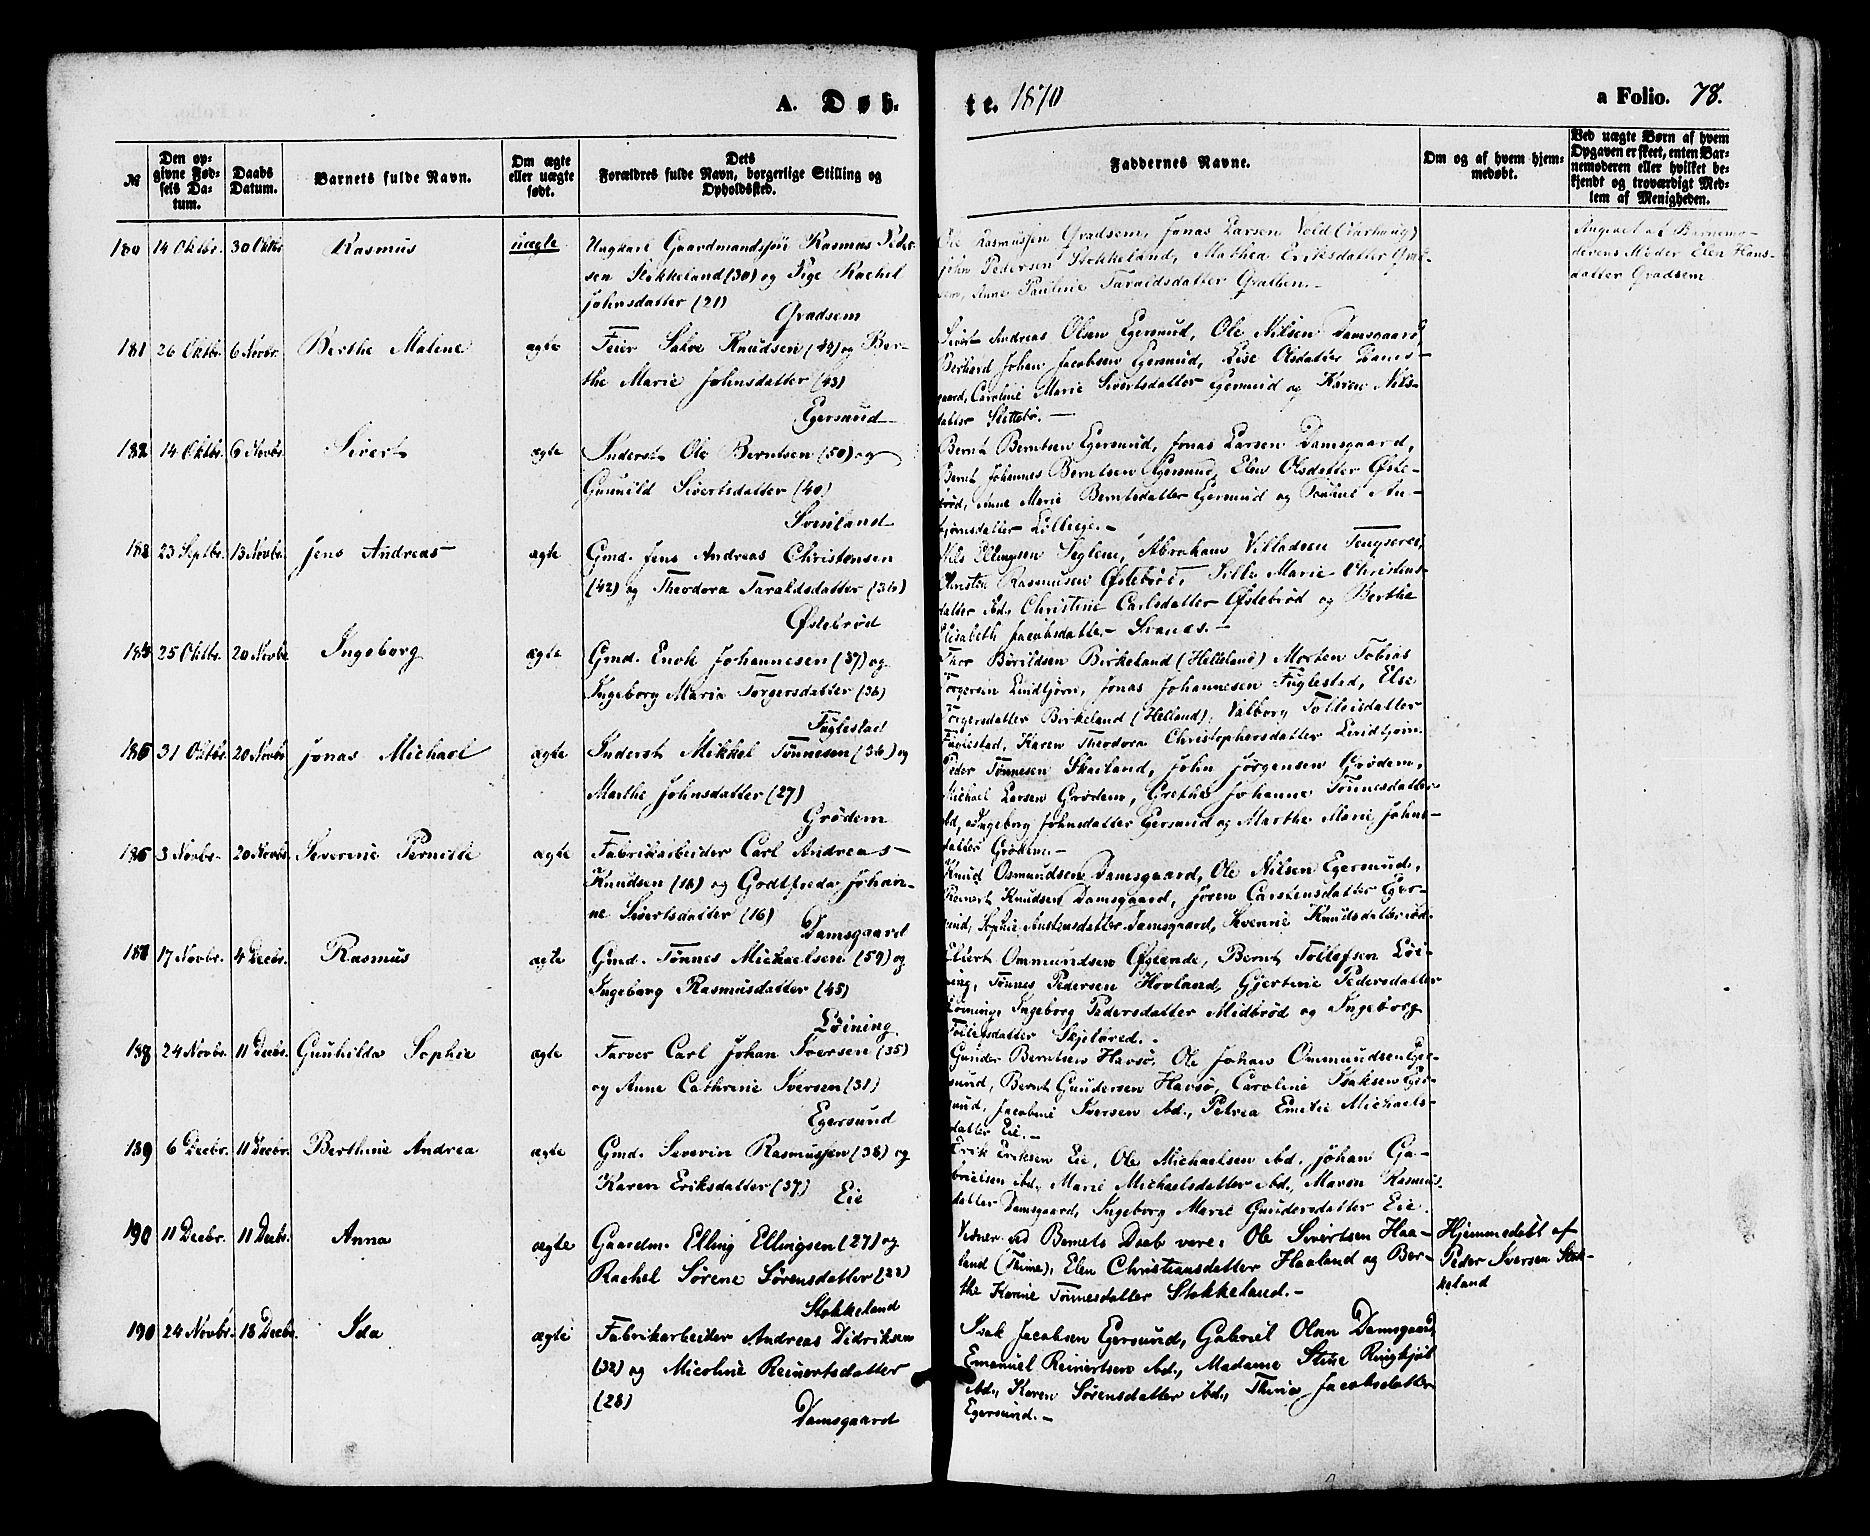 A. Døb-
te. 1870
a Folio. 78.
№
Den op-
givne Fød-
sels Da-
tum.
Daabs
Datum.
Barnets fulde Navn.
Om ægte
eller uægte
født.
Dets
Forældres fulde Navn, borgerlige Stilling og
Opholdssted.
Faddernes Navne.
Om og af hvem hjem-
medøbt.
Ved uægte Børn af hvem
Opgaven er skeet, enten Bar-
nemoderen eller hvilket be-
kjendt og troværdigt Med-
lem af Menigheden.
180 14 Oktbr. 30 Oktbr Rasmus uægte Ungkarl Gaardmandssøn Rasmus Peder-
sen Stokkeland (30) og Pige Rachel
Johnsdatter (21)
Gradsem
Rasmussen Gradsem, Jonas Larsen Vold (Varhoug)
John Pedersen Stokkeland, Mathea Eriksdatter Grad-
sem, Anne Pauline Taraldsdatter
Angivet af Barnemo-
derens Moder Elen Hans-
datter Gradsem
181 26 Oktbr. 6 Novbr. Berthe Malene ægte Feier Salve Knudsen (44) og Ber-
the Marie Johnsdatter (43)
Egersund
Sivert Andreas Olsen Egersund, Ole Nilsen Damsgaard,
Berhard Johan Jacobsen Egersund, Lise Olsdatter Dams-
gaard, Caroline Marie Sivertsdatter Egersund og Karen Nils-
datter Slettebø.
182 14 Oktbr. 6 Novbr. Sivert ægte Inderst Ole Berntsen (50) og
Gunild Sivertsdatter (40)
Svanland
Bernt Berntsen Egersund, Jonas Larsen Damsgaard,
Bernt Johannes Berntsen Egersund, Elen Olsdatter Øste-
brød, Anne Marie Berntsdatter Egersund og
bjørnsdatter
182 23 Septbr. 13 Novbr. Jens Andreas ægte Gmd. Jens Andreas Christensen
(42) og Theodora Taraldsdatter (36)
Østebrød
Nils Ellingsen Seglem, Abraham Villadsen Tengsereid,
Rasmusen Østebrød, Sille Marie Christens-
datter ibd., Christine Carlsdatter Østebrød og Berthe
Elisabeth Jacobsdatter Svanæs.
184 25 Oktbr. 20 Novbr Ingeborg ægte Gmd. Enok Johannesen (37) og
Ingeborg Maria Torgersdatter (36)
Fuglestad
Thor Børildsen Birkeland (Helleland) Morten Tobias
Torgersen Lindtjørn, Jonas Johannesen Fuglestad, Else
Torgersdatter Birkeland (Helland), Valborg Tolleisdatter
Fuglestad, Karen Theodora Christophersdatter Lindtjørn.
185 31 Oktbr. 20 Novbr Jonas Michael ægte Inderst Mikkel Tønnesen (36) og
Marthe Johnsdatter (27)
Grødem
Peder Tønnesen Skailand, John Jørgensen Grødem,
Michael Larsen Grødem, Grethe Johanne Tønnesdatter
ibd, Ingeborg Johnsdatter Egersund og Marthe Marie Johns-
datter Grødem.
186 3 Novbr. 20 Novbr. Severine Pernille ægte Fabrikarbeider Carl Andreas
Knudsen (16) og Godtfreda Johan-
ne Sivertsdatter (16)
Damsgaard
Knud Osmundsen Damsgaard, Ole Nilsen Egersund,
Reinert Knudsen Damsgaard, Joren Carstensdatter Eger-
sund, Sophie Damsgaard, Severine Knudsdatter ibd.
187 17 Novbr. 4 Decbr. Rasmus ægte Gmd. Tønnes Michaelsen (59) og
Ingeborg Rasmusdatter (45)
Løining
Eliert Ommundsen Øglende, Bernt Tollefsen Løi-
ning, Tønnes Pedersen Hovland, Gjertine Pedersdatter
Løining, Ingeborg Pedersdatter Midbrød og Ingeborg
Skjelbred.
188 24 Novbr. 11 Decbr. Gunhilda Sophie ægte Farver Carl Johan Iversen (35)
og Anne Cathrine Iversen (31)
Egersund
Gunder Berntsen Havsø, Ole Johan Ommundsen Eger-
sund, Bernt Gundersen Havsø, Caroline Isaksen Eger-
sund, Jacobine Iversen ibd., Petrea Emilie Michaels-
datter Eie.
189 6 Decbr. 11 Decbr. Berthine Andrea ægte Gmd. Severin Rasmussen (38) og
Karen Eriksdatter (37)
Eie
Erik Eriksen Eie, Ole Michaelsen ibd. Johan Ga-
brielsen ibd., Marie Michaelsdatter ibd., Maren Rasmus-
datter Damsgaard, Ingeborg Marie Gundersdatter Eie.
190 11 Decbr. 11 Decbr. Anna ægte Gaardm. Elling Ellingsen (27) og
Rachel Sørene Sørensdatter (23)
Stokkeland
Vidner ved Barnets Daab vare: Ole Sivertsen Haa-
land (Thime), Elen Christiansdatter Haaland og Ber-
the Karine Tønnesdatter Stokkeland.
Hjemmedøbt af
Peder Iversen Stok-
keland
190 24 Novbr. 18 Decbr. Ida ægte Fabrikarbeider Andreas Didriksen
(32) og Micoline Reinertsdatter
(28)
Damsgaard
Isak Jacobsen Egersund, Gabriel Olsen Damsgaard,
Emanuel Reinertsen ibd., Madame Stine Ringkjøb
ibd., Karen Sørensdatter ibd., Thrine Jacobsdatter
Egersund.